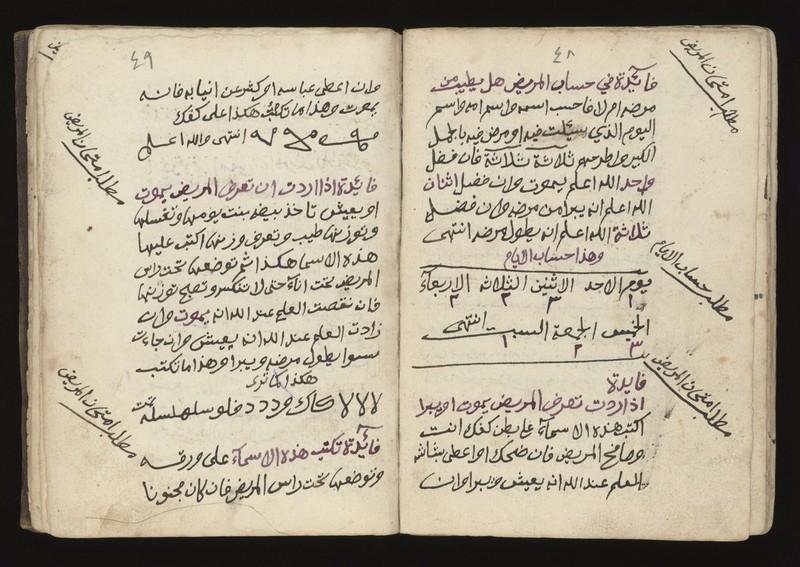 ٤٨
مطلب امتحان المريض
فايدة في حساب المريض هل يطيب من
مرضه ام لا فاحسب اسمه واسم امه واسم
اليوم الذي سيئلت فيه او مرض فيه بالجمل
الكبير واطرحهم ثلاثة ثلاثة فان فضل
واحد الله اعلم يموت وان فضل اثنان
الله اعلم انه يبرا من مرضه وان فضل
ثلاثة الله اعلم انه يطول مرضه انتهى
وهذا حساب الايام
مطلب حساب الايام
يوم الاحد الاثنين الثلاثه الاربعآء
١ ٣ ٢ ٢
الخميس الجمعة السبت انتهى
٣ ٢ ١
مطلب امتحان المريض
فايدة
اذا اردت تعرف المريض يموت او يبرا
اكتب هذه الاسمآء على بطن كفك انت
وصافح المريض فان ضحك او اعطى بشاشه
العلم عند الله انه يعيش ويبرا وان
٤٩
وان اعطى عباسه او كشر عن انيابه فانه
يموت وهذا ما تكتب هكذا على كفك
انتهى والله اعلم
مطلب امتحان المريض
فايدة اذا اردت ان تعرف المريض يموت
او يعيش تاخذ بيضه بنت يومها وتغسلها
وتوزنها طيب وتعرف وزنها اكتب عليها
هذه الاسما هكذا ثم توضعها تحت راس
المريض تحت انآء حتى لا تنكسر وتصبح توزنها
فان نقصت العلم عند الله انه يموت وان
زادت العلم عند الله انه يعيش وان جاءت
سوا يطول مرضه ويبرا وهذا ما تكتب
هكذا كما ترى
مطلب امتحان المريض
فايدة تكتب هذه الاسمآء على ورقه
وتوضعها تحت راس المريض فان كان مجنونا